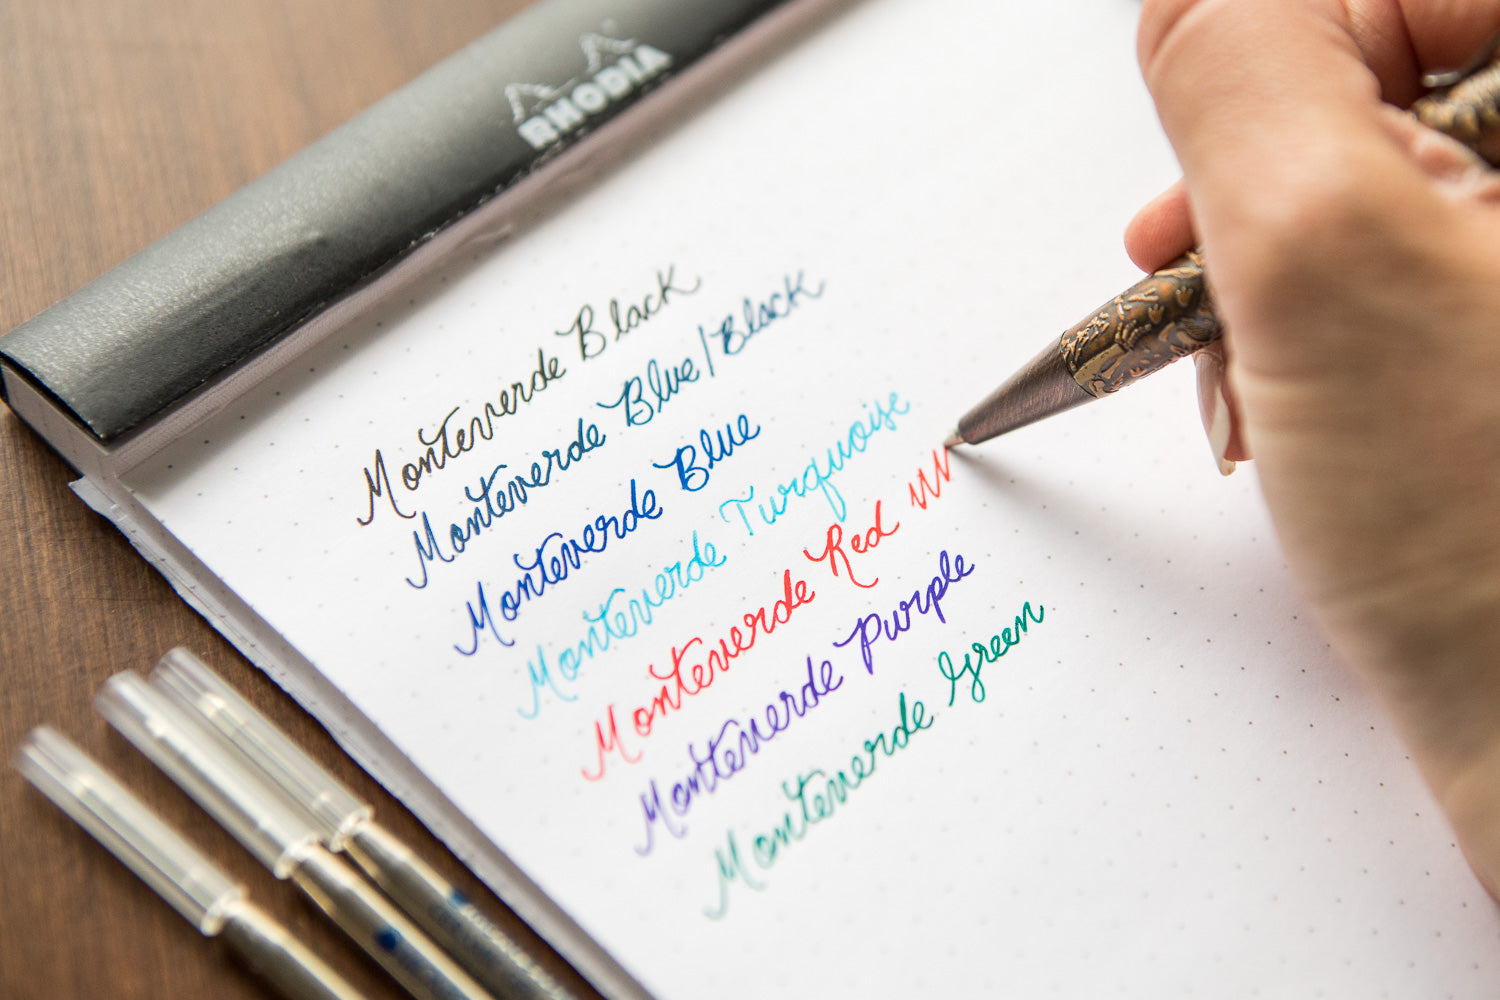 RHODIA
Monteverde Black
Monteverde Blue/Black
Monteverde Blue
Monteverde Turquoise
Monteverde Red
Monteverde Purple
Monteverde Green